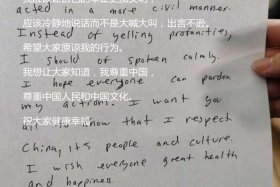 acted in a more civil manner.
应该冷静地说话而不是大喊大叫，出言不逊。
Instead of yelling profanities,
希望大家原谅我的行为。
I should of spoken calmly.
我想让大家知道，我尊重中国，
I hope everyone can pardon
尊重中国人民和中国文化。
my actions. I want you
祝大家健康幸福。
all to know that I respect
China, its people and culture.
I wish everyone great health
and happiness.